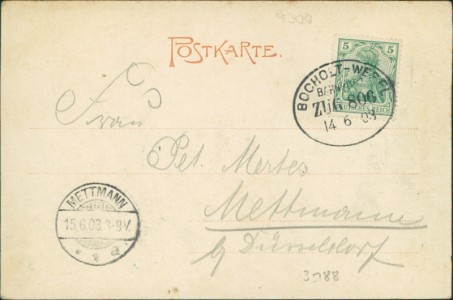 9300
POSTKARTE.
5 5
BOCHOLT-WESEL
BAHNPOST
ZUG 806
14 6 03
Frau
Pet. Mertes
METTMANN
15.6.03.3-9V.
* * a
Mettmann
b/ Düsseldorf
3988